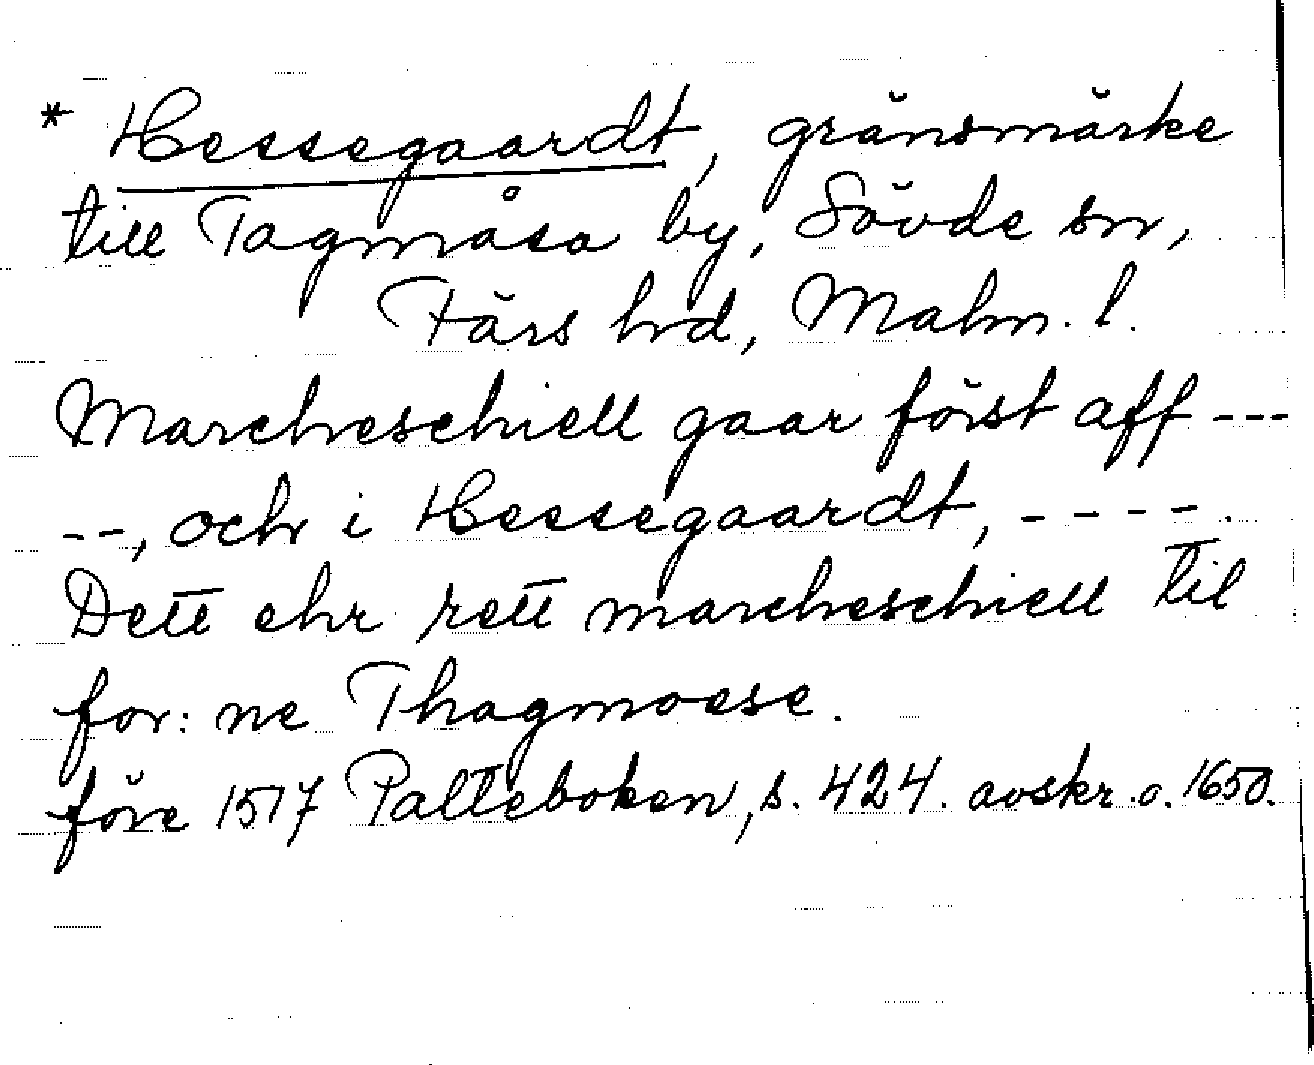 * Hessegaardt, gränsmärke
till Tagmåsa by, Sövde sn,
Färs hrd, Malm. l.
Marcheschiell gaar först aff ---
--, och i Hessegaardt, ----.
Dett ehr rett marcheschiell til
for: ne Thagmoese.
före 1517 Palteboken, s. 424. avskr. o. 1650.